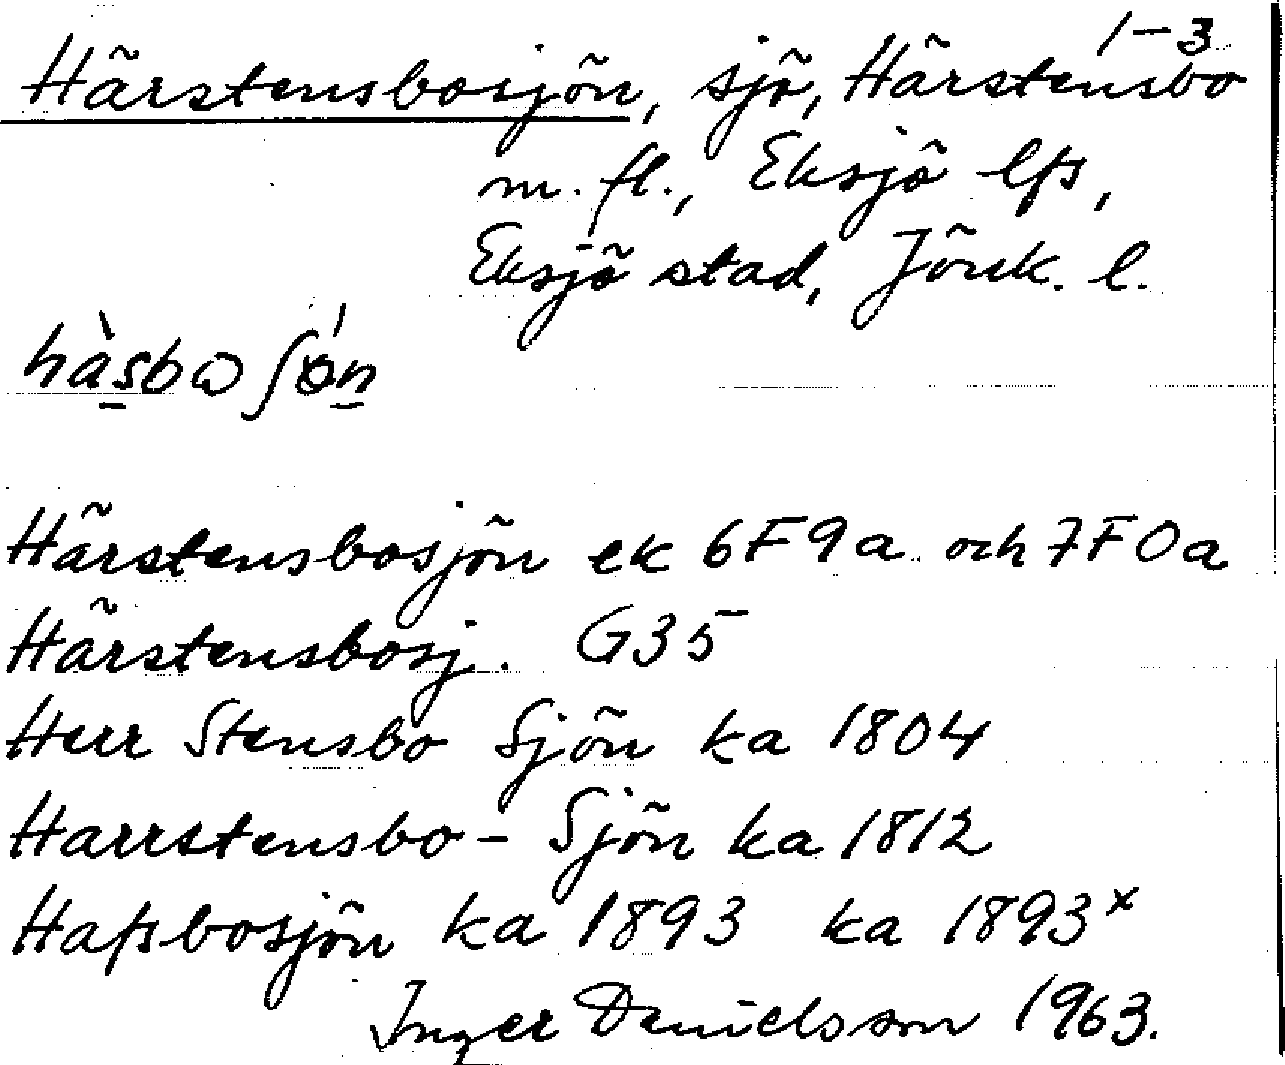 Härstensbosjön, sjö, Härstensbo 1-3
m. fl., Eksjö lfs,
Eksjö stad, Jönk. l.
hàsbɷʃǿn
Härstensbosjön ek 6F9a och 7F0a
Härstensbosj. G35
Herr Stensbo Sjön ka 1804
Harrstensbo- Sjön ka 1812
Hafsbosjön ka 1893 ka 1893ˣ
Inger Danielsson 1963.